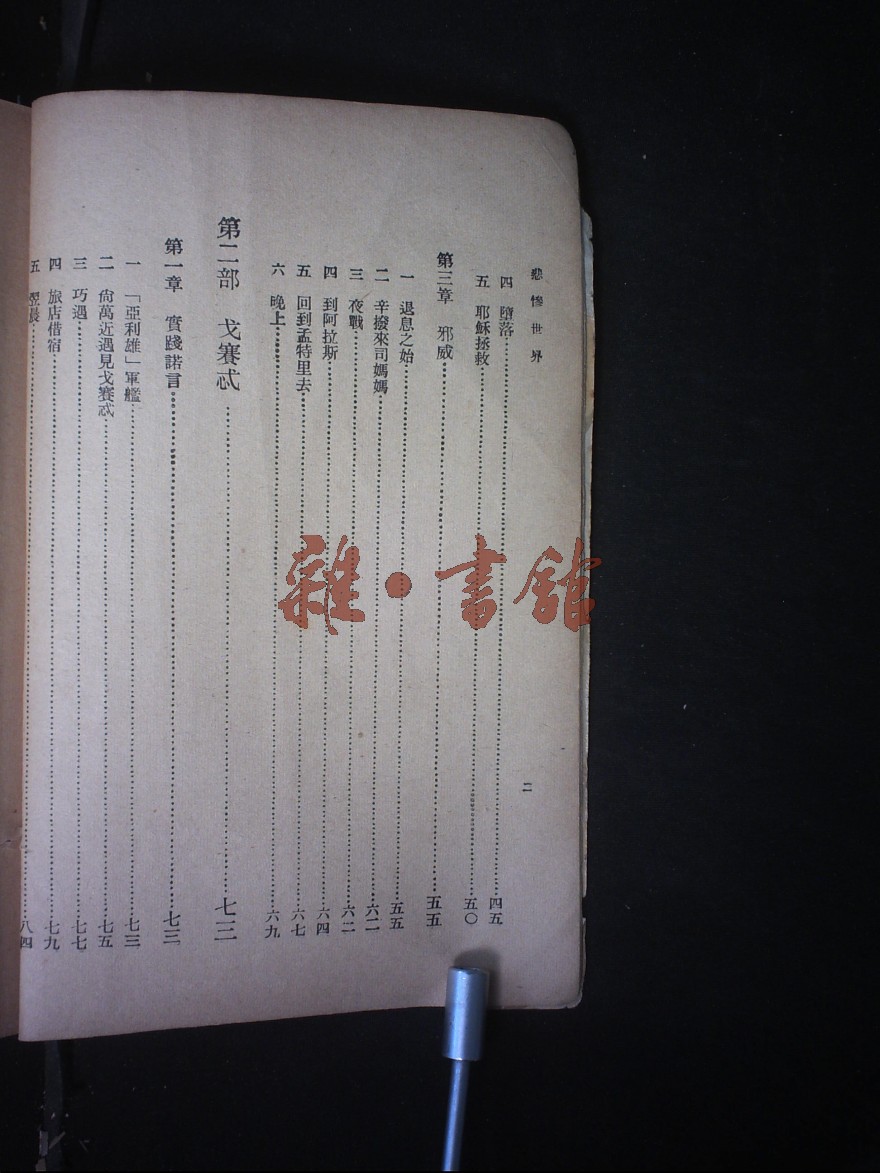 悲慘世界
四 墮落 四五
五 耶穌拯救 五〇
第三章 邪威 五五
一 退息之始 五五
二 辛撥來司媽媽 六二
三 夜戰 六二
四 到阿拉斯 六四
五 回到孟特里去 六七
六 晚上 六九
第二部 戈賽忒 七三
第一章 實踐諾言 七三
一 「亞利雄」軍艦 七三
二 尙萬近遇見戈賽忒 七五
三 巧遇 七七
四 旅店借宿 七九
五 翌晨 八四
二
雜·書館